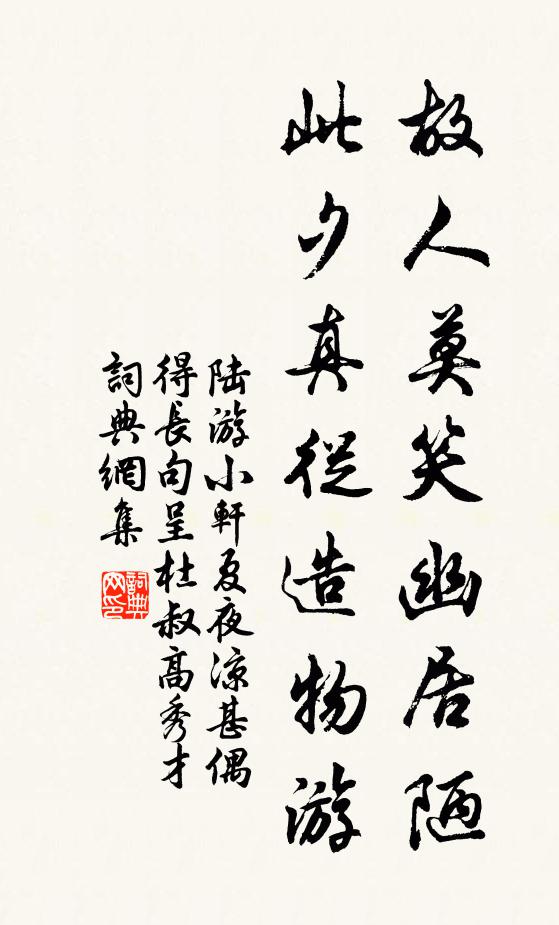 故人莫笑幽居陋
此夕真從造物游
陆游小軒夏夜凉甚偶
得長句呈杜叔高秀才
詞典網集
詞典网印